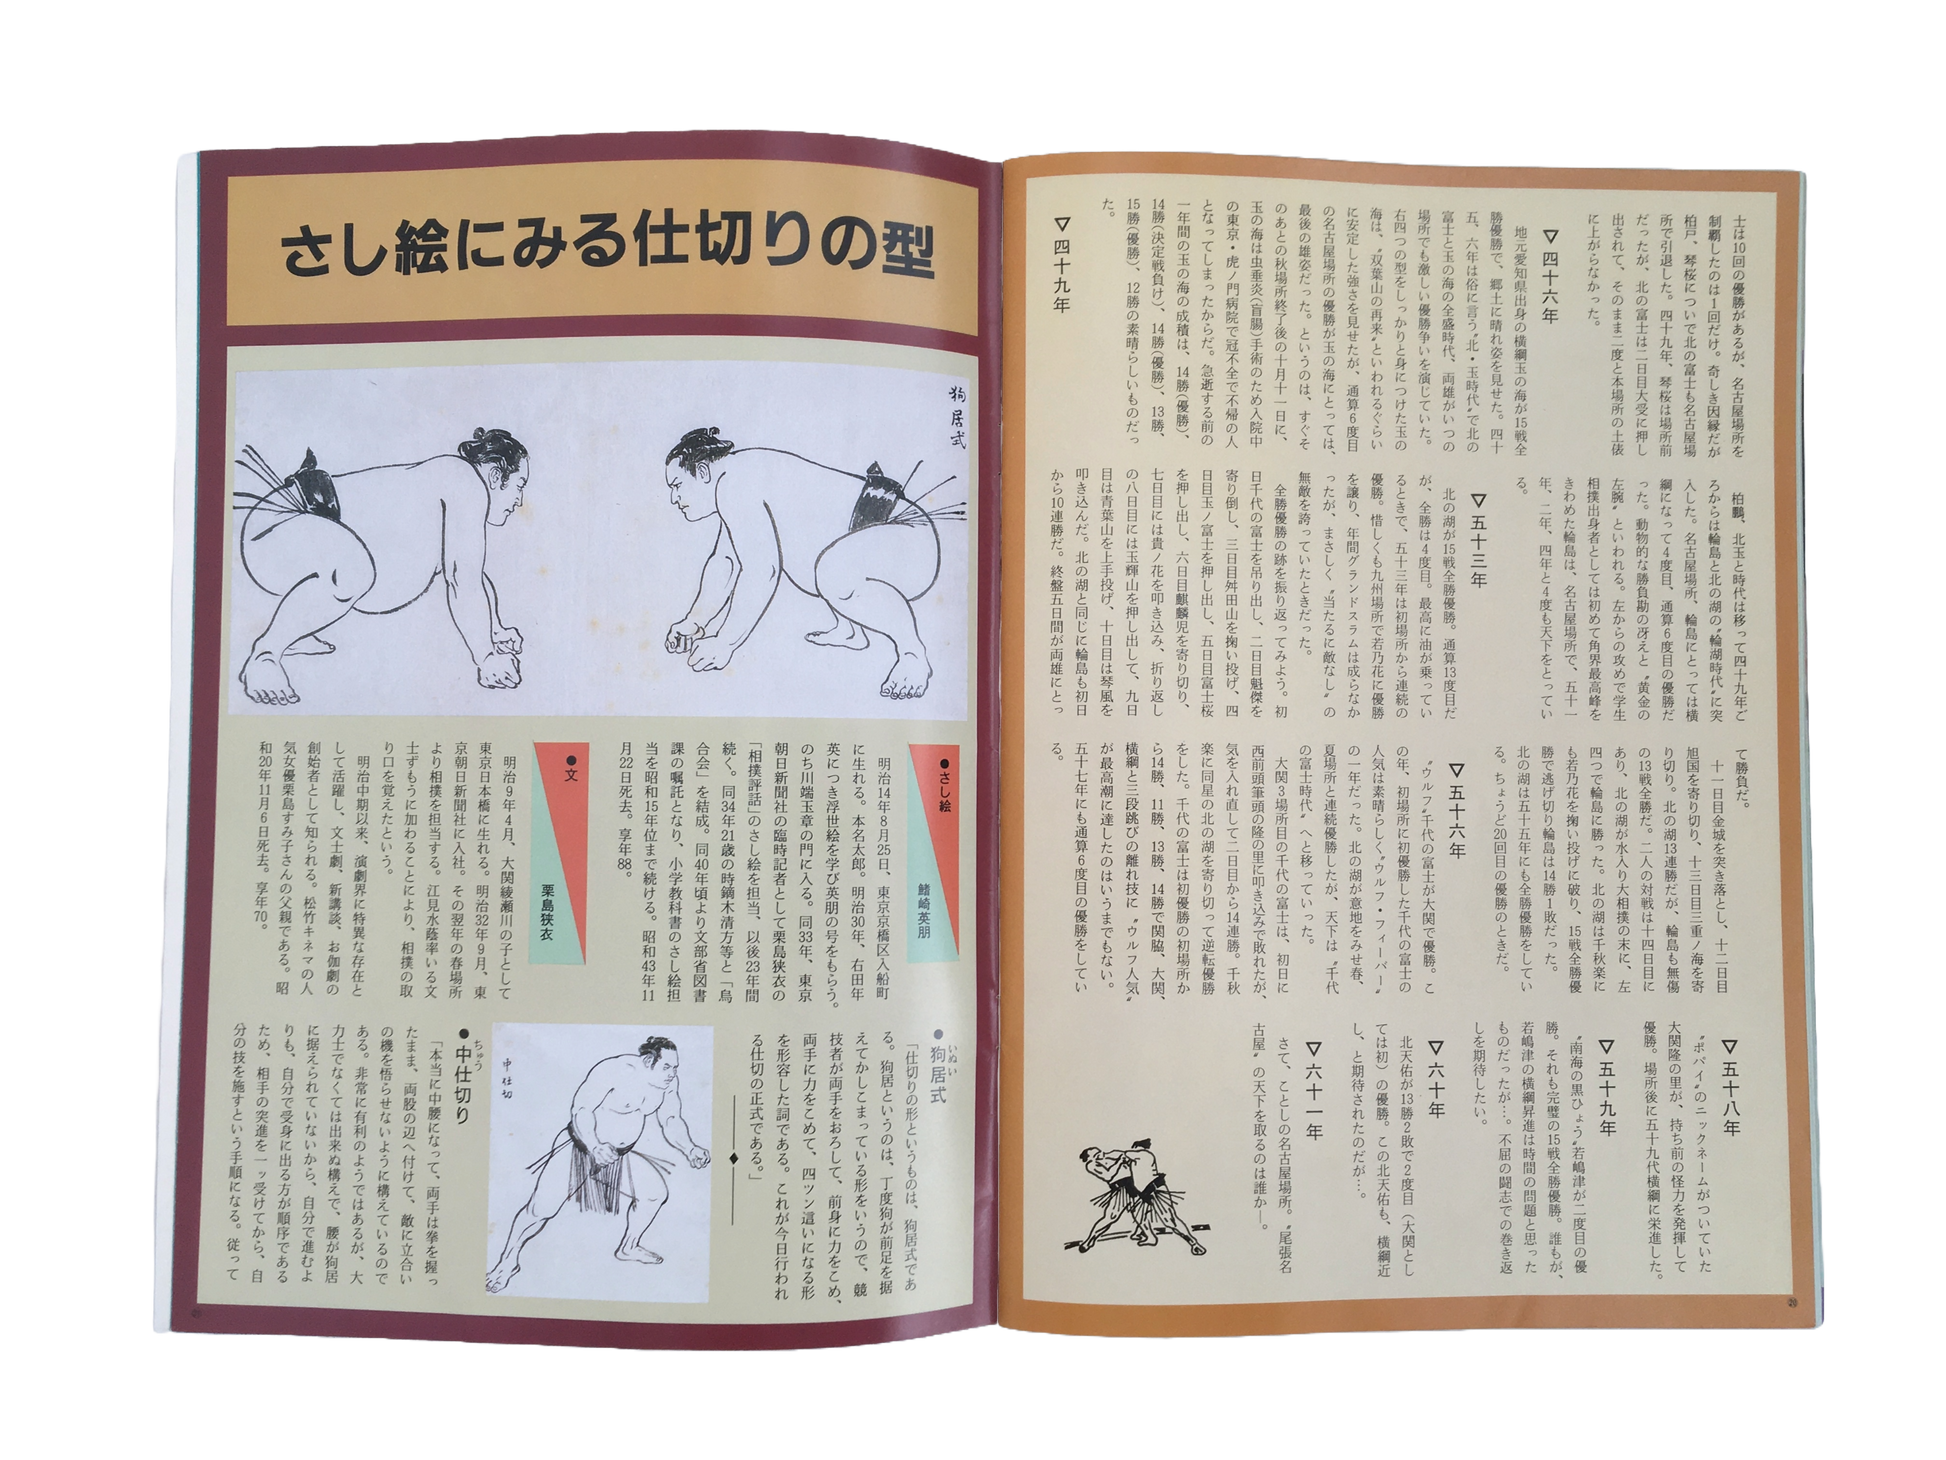 士は10回の優勝があるが、名古屋場所を
制覇したのは1回だけ。奇しき因縁だが
柏戸、琴桜についで北の富士も名古屋場
所で引退した。四十九年、琴桜は場所前
だったが、北の富士は二日目大受に押し
出されて、そのまま二度と本場所の土俵
に上がらなかった。
▽四十六年
地元愛知県出身の横綱玉の海が15戦全
勝優勝で、郷土に晴れ姿を見せた。四十
五、六年は俗に言う〝北・玉時代〟で北の
富士と玉の海の全盛時代、両雄がいつの
場所でも激しい優勝争いを演じていた。
右四つの型をしっかりと身につけた玉の
海は、〝双葉山の再来〟といわれるぐらい
に安定した強さを見せたが、通算6度目
の名古屋場所の優勝が玉の海にとっては、
最後の雄姿だった。というのは、すぐそ
のあとの秋場所終了後の十月十一日に、
玉の海は虫垂炎(盲腸)手術のため入院中
の東京・虎ノ門病院で冠不全で不帰の人
となってしまったからだ。急逝する前の
一年間の玉の海の成積は、14勝(優勝)、
14勝(決定戦負け)、14勝(優勝)、13勝、
15勝(優勝)、12勝の素晴らしいものだっ
た。
▽四十九年
柏鵬、北玉と時代は移って四十九年ご
ろからは輪島と北の湖の〝輪湖時代〟に突
入した。名古屋場所、輪島にとっては横
綱になって4度目、通算6度目の優勝だ
った。動物的な勝負勘の冴えと〝黄金の
左腕〟といわれる。左からの攻めで学生
相撲出身者としては初めて角界最高峰を
きわめた輪島は、名古屋場所で、五十一
年、二年、四年と4度も天下をとってい
る。
▽五十三年
北の湖が15戦全勝優勝。通算13度目だ
が、全勝は4度目。最高に油が乗ってい
るときで、五十三年は初場所から連続の
優勝。惜しくも九州場所で若乃花に優勝
を譲り、年間グランドスラムは成らなか
ったが、まさしく〝当たるに敵なし〟の
無敵を誇っていたときだった。
全勝優勝の跡を振り返ってみよう。初
日千代の富士を吊り出し、二日目魁傑を
寄り倒し、三日目舛田山を掬い投げ、四
日目玉ノ富士を押し出し、五日目富士桜
を押し出し、六日目麒麟児を寄り切り、
七日目には貴ノ花を叩き込み、折り返し
の八日目には玉輝山を押し出して、九日
目は青葉山を上手投げ、十日目は琴風を
叩き込んだ。北の湖と同じに輪島も初日
から10連勝だ。終盤五日間が両雄にとっ
て勝負だ。
十一日目金城を突き落とし、十二日目
旭国を寄り切り、十三日目三重ノ海を寄
り切り。北の湖13連勝だが、輪島も無傷
の13戦全勝だ。二人の対戦は十四日目に
あり、北の湖が水入り大相撲の末に、左
四つで輪島に勝った。北の湖は千秋楽に
も若乃花を掬い投げに破り、15戦全勝優
勝で逃げ切り輪島は14勝1敗だった。
北の湖は五十五年にも全勝優勝をしてい
る。ちょうど20回目の優勝のときだ。
▽五十六年
〝ウルフ〟千代の富士が大関で優勝。こ
の年、初場所に初優勝した千代の富士の
人気は素晴らしく〝ウルフ・フィーバー〟
の一年だった。北の湖が意地をみせ春、
夏場所と連続優勝したが、天下は〝千代
の富士時代〟へと移っていった。
大関3場所目の千代の富士は、初日に
西前頭筆頭の隆の里に叩き込みで敗れたが、
気を入れ直して二日目から14連勝。千秋
楽に同星の北の湖を寄り切って逆転優勝
をした。千代の富士は初優勝の初場所か
ら14勝、11勝、13勝、14勝で関脇、大関、
横綱と三段跳びの離れ技に〝ウルフ人気〟
が最高潮に達したのはいうまでもない。
五十七年にも通算6度目の優勝をしてい
る。
▽五十八年
〝ポパイ〟のニックネームがついていた
大関隆の里が、持ち前の怪力を発揮して
優勝。場所後に五十九代横綱に栄進した。
▽五十九年
〝南海の黒ひょう〟若嶋津が二度目の優
勝。それも完璧の15戦全勝優勝。誰もが、
若嶋津の横綱昇進は時間の問題と思った
ものだったが…。不屈の闘志での巻き返
しを期待したい。
▽六十年
北天佑が13勝2敗で2度目(大関とし
ては初)の優勝。この北天佑も、横綱近
し、と期待されたのだが…。
▽六十一年
さて、ことしの名古屋場所。〝尾張名
古屋〟の天下を取るのは誰か―。
⑳
さし絵にみる仕切りの型
狗居式
●さし絵
鰭崎英朋
明治14年8月25日、東京京橋区入船町
に生れる。本名太郎。明治30年、右田年
英につき浮世絵を学び英朋の号をもらう。
のち川端玉章の門に入る。同33年、東京
朝日新聞社の臨時記者として栗島狭衣の
「相撲評話」のさし絵を担当、以後23年間
続く。同34年21歳の時鏑木清方等と「烏
合会」を結成。同40年頃より文部省図書
課の嘱託となり、小学教科書のさし絵担
当を昭和15年位まで続ける。昭和43年11
月22日死去。享年88。
●文
栗島狭衣
明治9年4月、大関綾瀬川の子として
東京日本橋に生れる。明治32年9月、東
京朝日新聞社に入社。その翌年の春場所
より相撲を担当する。江見水蔭率いる文
士ずもうに加わることにより、相撲の取
り口を覚えたという。
明治中期以来、演劇界に特異な存在と
して活躍し、文士劇、新講談、お伽劇の
創始者として知られる。松竹キネマの人
気女優栗島すみ子さんの父親である。昭
和20年11月6日死去。享年70。
●狗居式
いぬい
「仕切りの形というものは、狗居式であ
る。狗居というのは、丁度狗が前足を据
えてかしこまっている形をいうので、競
技者が両手をおろして、前身に力をこめ、
両手に力をこめて、四ツン這いになる形
を形容した詞である。これが今日行われ
る仕切の正式である。」
中仕切
●中仕切り
ちゅう
「本当に中腰になって、両手は拳を握っ
たまま、両股の辺へ付けて、敵に立合い
の機を悟らせないように構えているので
ある。非常に有利のようではあるが、大
力士でなくては出来ぬ構えで、腰が狗居
に据えられていないから、自分で進むよ
りも、自分で受身に出る方が順序である
ため、相手の突進を一ッ受けてから、自
分の技を施すという手順になる。従って